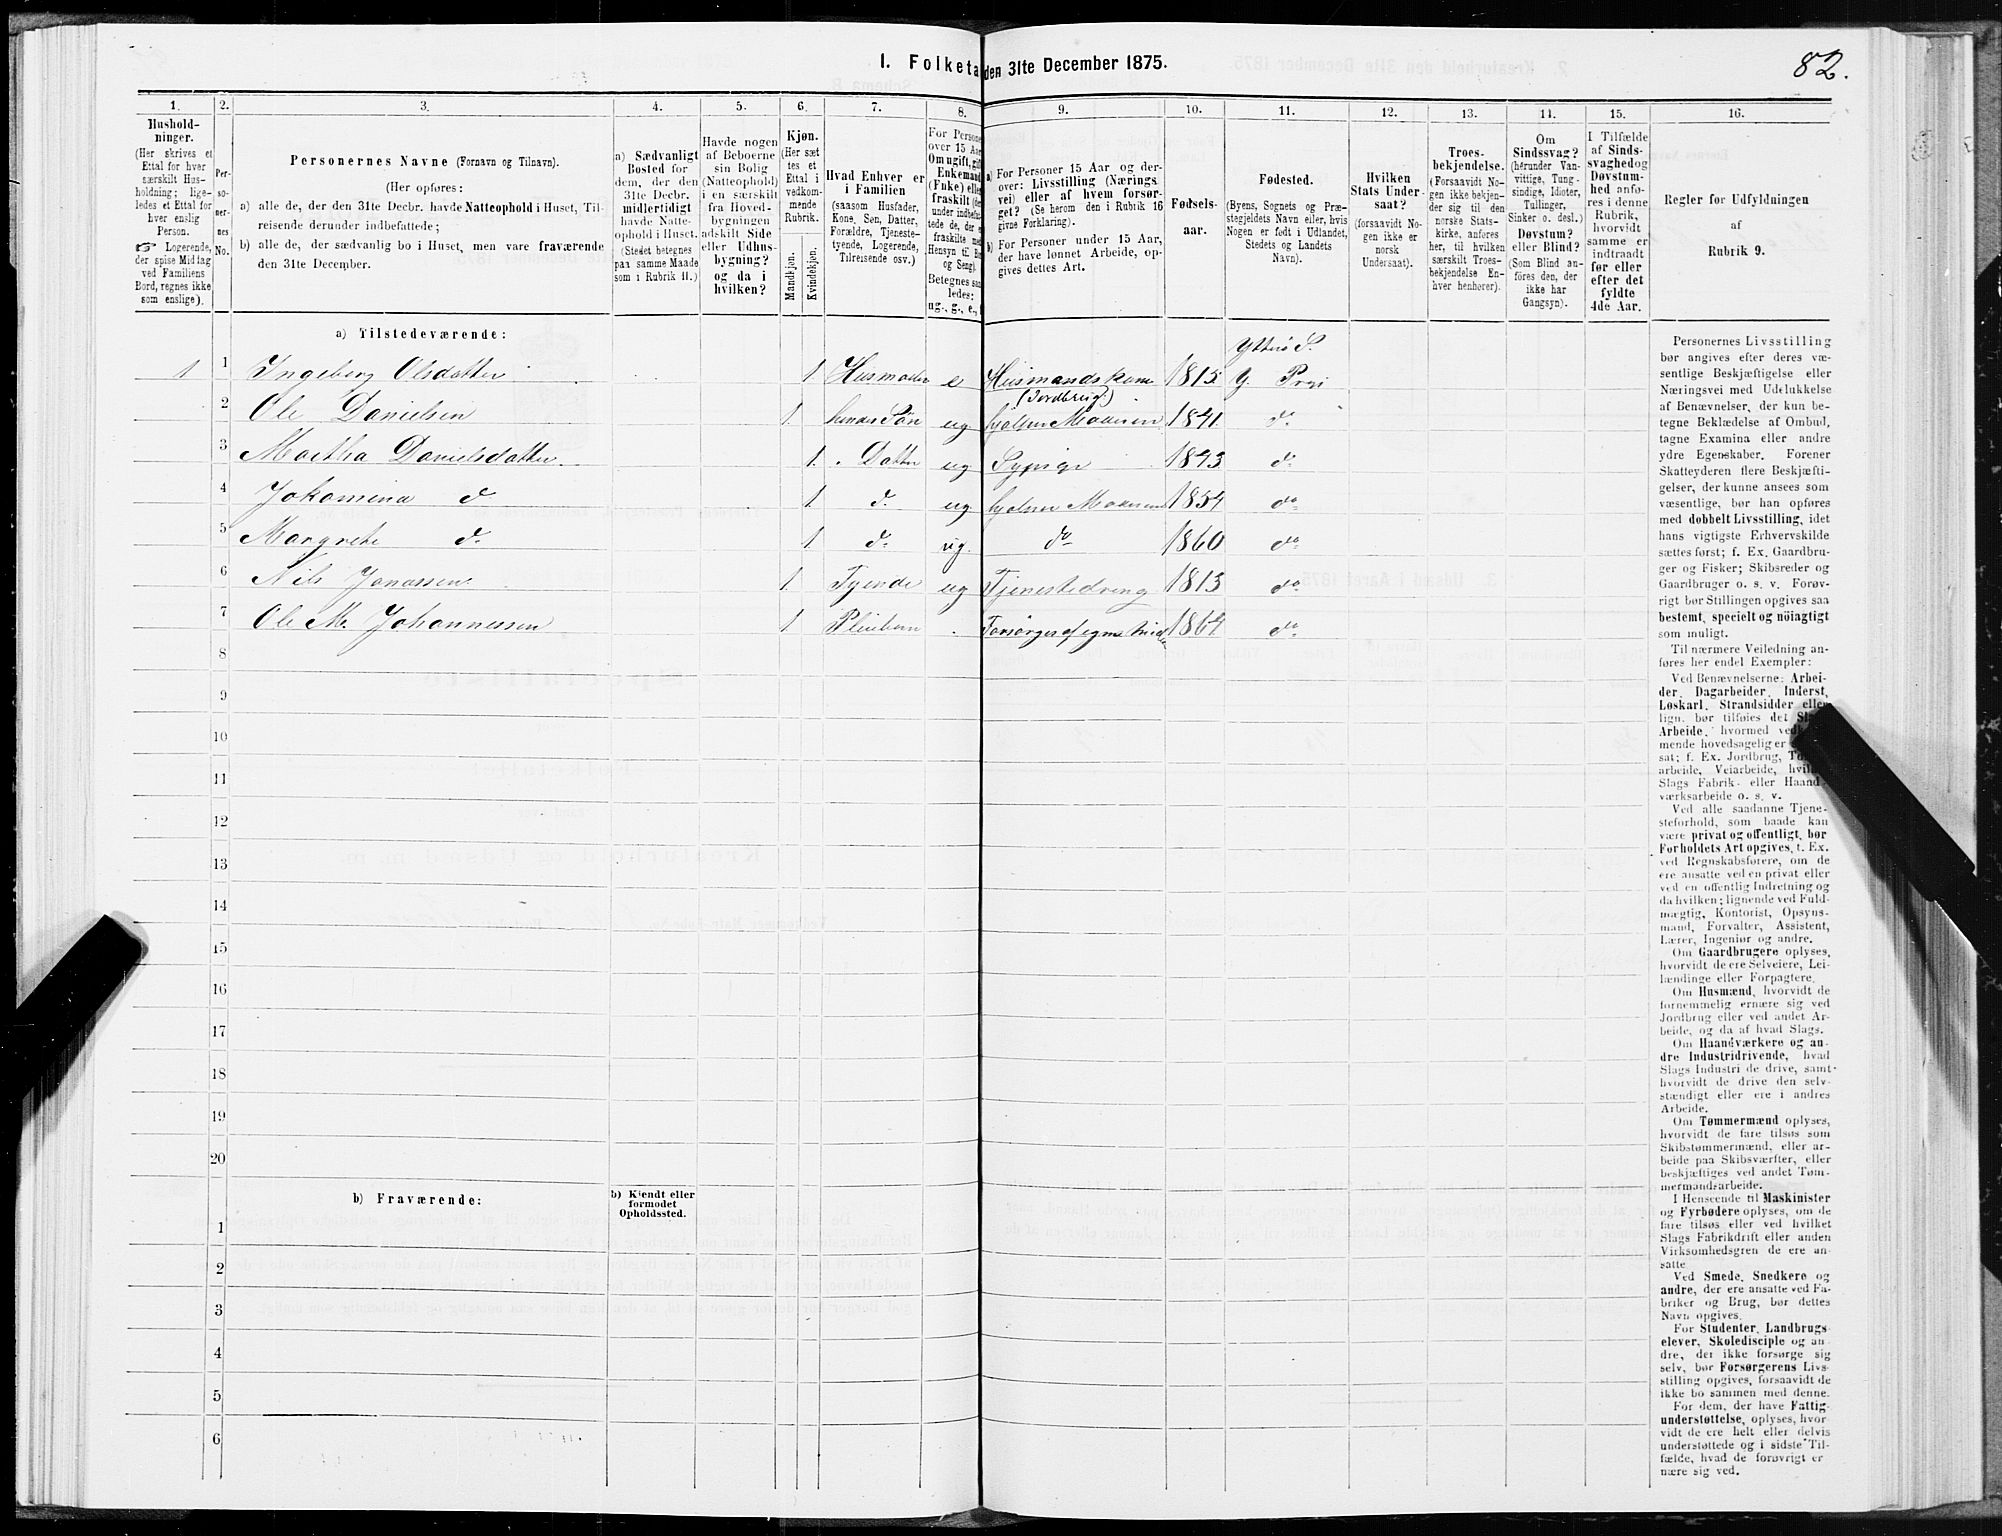 82.
1. Folketa den 31te December 1875.
1. 2. 3. 4. 5. 6. 7. 8. 9. 10. 11. 12. 13. 14. 15. 16.
Hushold-
ninger.
(Her skrives et
Ettal for hver
særskilt Hus-
holdning; lige-
ledes et Ettal for
hver enslig
Person.
☞ Logerende,
der spise Middag
ved Familiens
Bord, regnes ikke
som enslige).
Per-
so-
ner-
nes
No.
Personernes Navne (Fornavn og Tilnavn).
(Her opføres:
a) alle de, der den 31te Decbr. havde Natteophold i Huset, Til-
reisende derunder indbefattede;
b) alle de, der sædvanlig bo i Huset, men vare fraværende
den 31te December.
a) Sædvanligt
Bosted for
dem, der den
31te Decbr.
midlertidigt
havde Natte-
ophold i Huset.
(Stedet betegnes
paa samme Maade
som i Rubrik 11.)
Havde nogen
af Beboerne
sin Bolig
(Natteophold)
i en særskilt
fra Hoved-
bygningen
adskilt Side
eller Udhus-
bygning?
og da i
hvilken?
Kjøn.
(Her sæt
tes et
Ettal i
vedkom-
mende
Rubrik.
Mandkjøn.
Kvindekjøn.
Hvad Enhver er
i Familien
(saasom Husfader,
Kone, Søn, Datter,
Forældre, Tjeneste-
tyende, Logerende,
Tilreisende osv.)
For Persone
over 15 Aar
Om ugift, gift
Enkemand
(Enke) elle
fraskilt (her
under indbefat-
tede de, der e
fraskilte med
Hensyn til Bo
og Seng).
Betegnes saa
ledes:
ug., g., e., f
a) For Personer 15 Aar og der-
over: Livsstilling (Nærings
vei) eller af hvem forsør-
get? (Se herom den i Rubrik 16
givne Forklaring).
b) For Personer under 15 Aar,
der have lønnet Arbeide, op-
gives dettes Art.
Fødsels-
aar.
Fødested.
(Byens, Sognets og Præ-
stegjeldets Navn eller, hvis
Nogen er født i Udlandet,
Stedets og Landets
Navn).
Hvilken
Stats Under-
saat?
(forsaavidt No-
gen ikke er
norsk
Undersaat).
Troes-
bekjendelse.
(Forsaavidt No-
gen ikke bekjen-
der sig til den
norske Stats-
kirke, anføres
her, til hvilken
særskilt Troes-
bekjendelse En-
hver henhører).
Om
Sindssvag?
(herunder Van-
vittige, Tung-
sindige, Idioter,
Tullinger,
Sinker o. desl.)
Døvstum?
eller Blind?
(Som Blind an-
føres den, der
ikke har
Gangsyn).
I Tilfælde
af Sinds-
svaghed og
Døvstum-
hed anfø-
res i denne
Rubrik,
hvorvidt
samme er
indtraadt
før eller
efter det
fyldte
4de Aar.
Regler for Udfyldningen
af
Rubrik 9.
a) Tilstedeværende:
Ytterø S.
1 1 Ingeborg Olsdatter 1 Husmoder e Husmandskone 1815 Y. Prgj
(Jordbrug)
2 Ole Danielsen 1 hendes Søn ug hjelper Moderen 1841 do
3 Martha Danielsdatter 1. " Datter ug Sypige 1843 do
4 Jokomina do 1 do ug hjelper Moderen 1854 do
5 Margrete do 1 do ug. do 1860 do
6 Nils Jonassen 1 Tyende ug Tjenestedreng 1813 do
7 Ole M. Johannessen 1 Pleiebarn . Forsørges af egne Midler 1864 do
8
9
10
11
12
13
14
15
16
17
18
19
20
b) Fraværende:
b) Kjendt eller
formodet
Opholdssted.
1
2
3
4
5
6
Personernes Livsstilling
bør angives efter deres væ-
sentlige Beskjæftigelse eller
Næringsvei med Udelukkelse
af Benævnelser, der kun be-
tegne Beklædelse af Ombud,
tagne Examina eller andre
ydre Egenskaber. Forener
Skatteyderen flere Beskjæfti-
gelser, der kunne ansees som
væsentlige, bør han opføres
med dobbelt Livsstilling, idet
hans vigtigste Erhvervskilde
sættes først; f. Ex. Gaardbru-
ger og Fisker; Skibsreder og
Gaardbruger o. s. v. Forøv-
rigt bør Stillingen opgives saa
bestemt, specielt og nøiagtigt
som muligt.
Til nærmere Veiledning an-
føres her endel Exempler:
Ved Benævnelserne: Arbei-
der, Dagarbeider, Inderst,
Løskarl, Strandsidder eller
lign. bør tilføies det Sl
Arbeide, hvormed ved
mende hovedsagelig er
sat; f. Ex. Jordbrug, To
arbeide, Veiarbeide, hvil
Slags Fabrik- eller Haand-
værksarbeide o. s. v.
Ved alle saadanne Tjene-
steforhold, som baade kan
være privat og offentligt, bør
Forholdets Art opgives, t. Ex.
ved Regnskabsførere, om de
ere ansatte ved en privat eller
ved en offentlig Indretning og
da hvilken; lignende ved Fuld-
mægtig, Kontorist, Opsyns-
mand, Forvalter, Assistent,
Lærer, Ingeniør og andre.
Om Gaardbrugere oplyses,
hvorvidt de ere Selveiere, Lei-
lændinge eller Forpagtere.
Om Husmænd, hvorvidt de
fornemmelig ernære sig ved
Jordbrug eller ved andet Ar-
beide, og da af hvad Slags.
Om Haandværkere og an-
dre Industridrivende, hvad
Slags Industri de drive, samt
hvorvidt de drive den selv-
stændigt eller ere i andres
Arbeide.
Om Tømmermænd oplyses,
hvorvidt de fare tilsøs som
Skibstømmermænd, eller ar-
beide paa Skibsværfter, eller
beskjæftiges ved andet Tøm-
mermandsarbeide.
I Henseende til Maskinister
og Fyrbødere oplyses, om de
fare tilsøs eller ved hvilket
Slags Fabrikdrift eller anden
Virksomhedsgren de ere an-
satte
Ved Smede, Snedkere og
andre, der ere ansatte ved Fa-
briker og Brug, bør dettes
Navn opgives.
For Studenter, Landbrugs-
elever, Skoledisciple og an-
dre, der ikke forsørge sig
selv, bør Forsørgerens Livs-
stilling opgives, forsaavidt de
ikke bo sammen med denne.
For dem, der have Fattig-
understøttelse, oplyses, hvor
vidt de ere helt eller delvis
understøttede og i sidste Til-
fælde, hvad de forøvrigt er
nære sig ved.